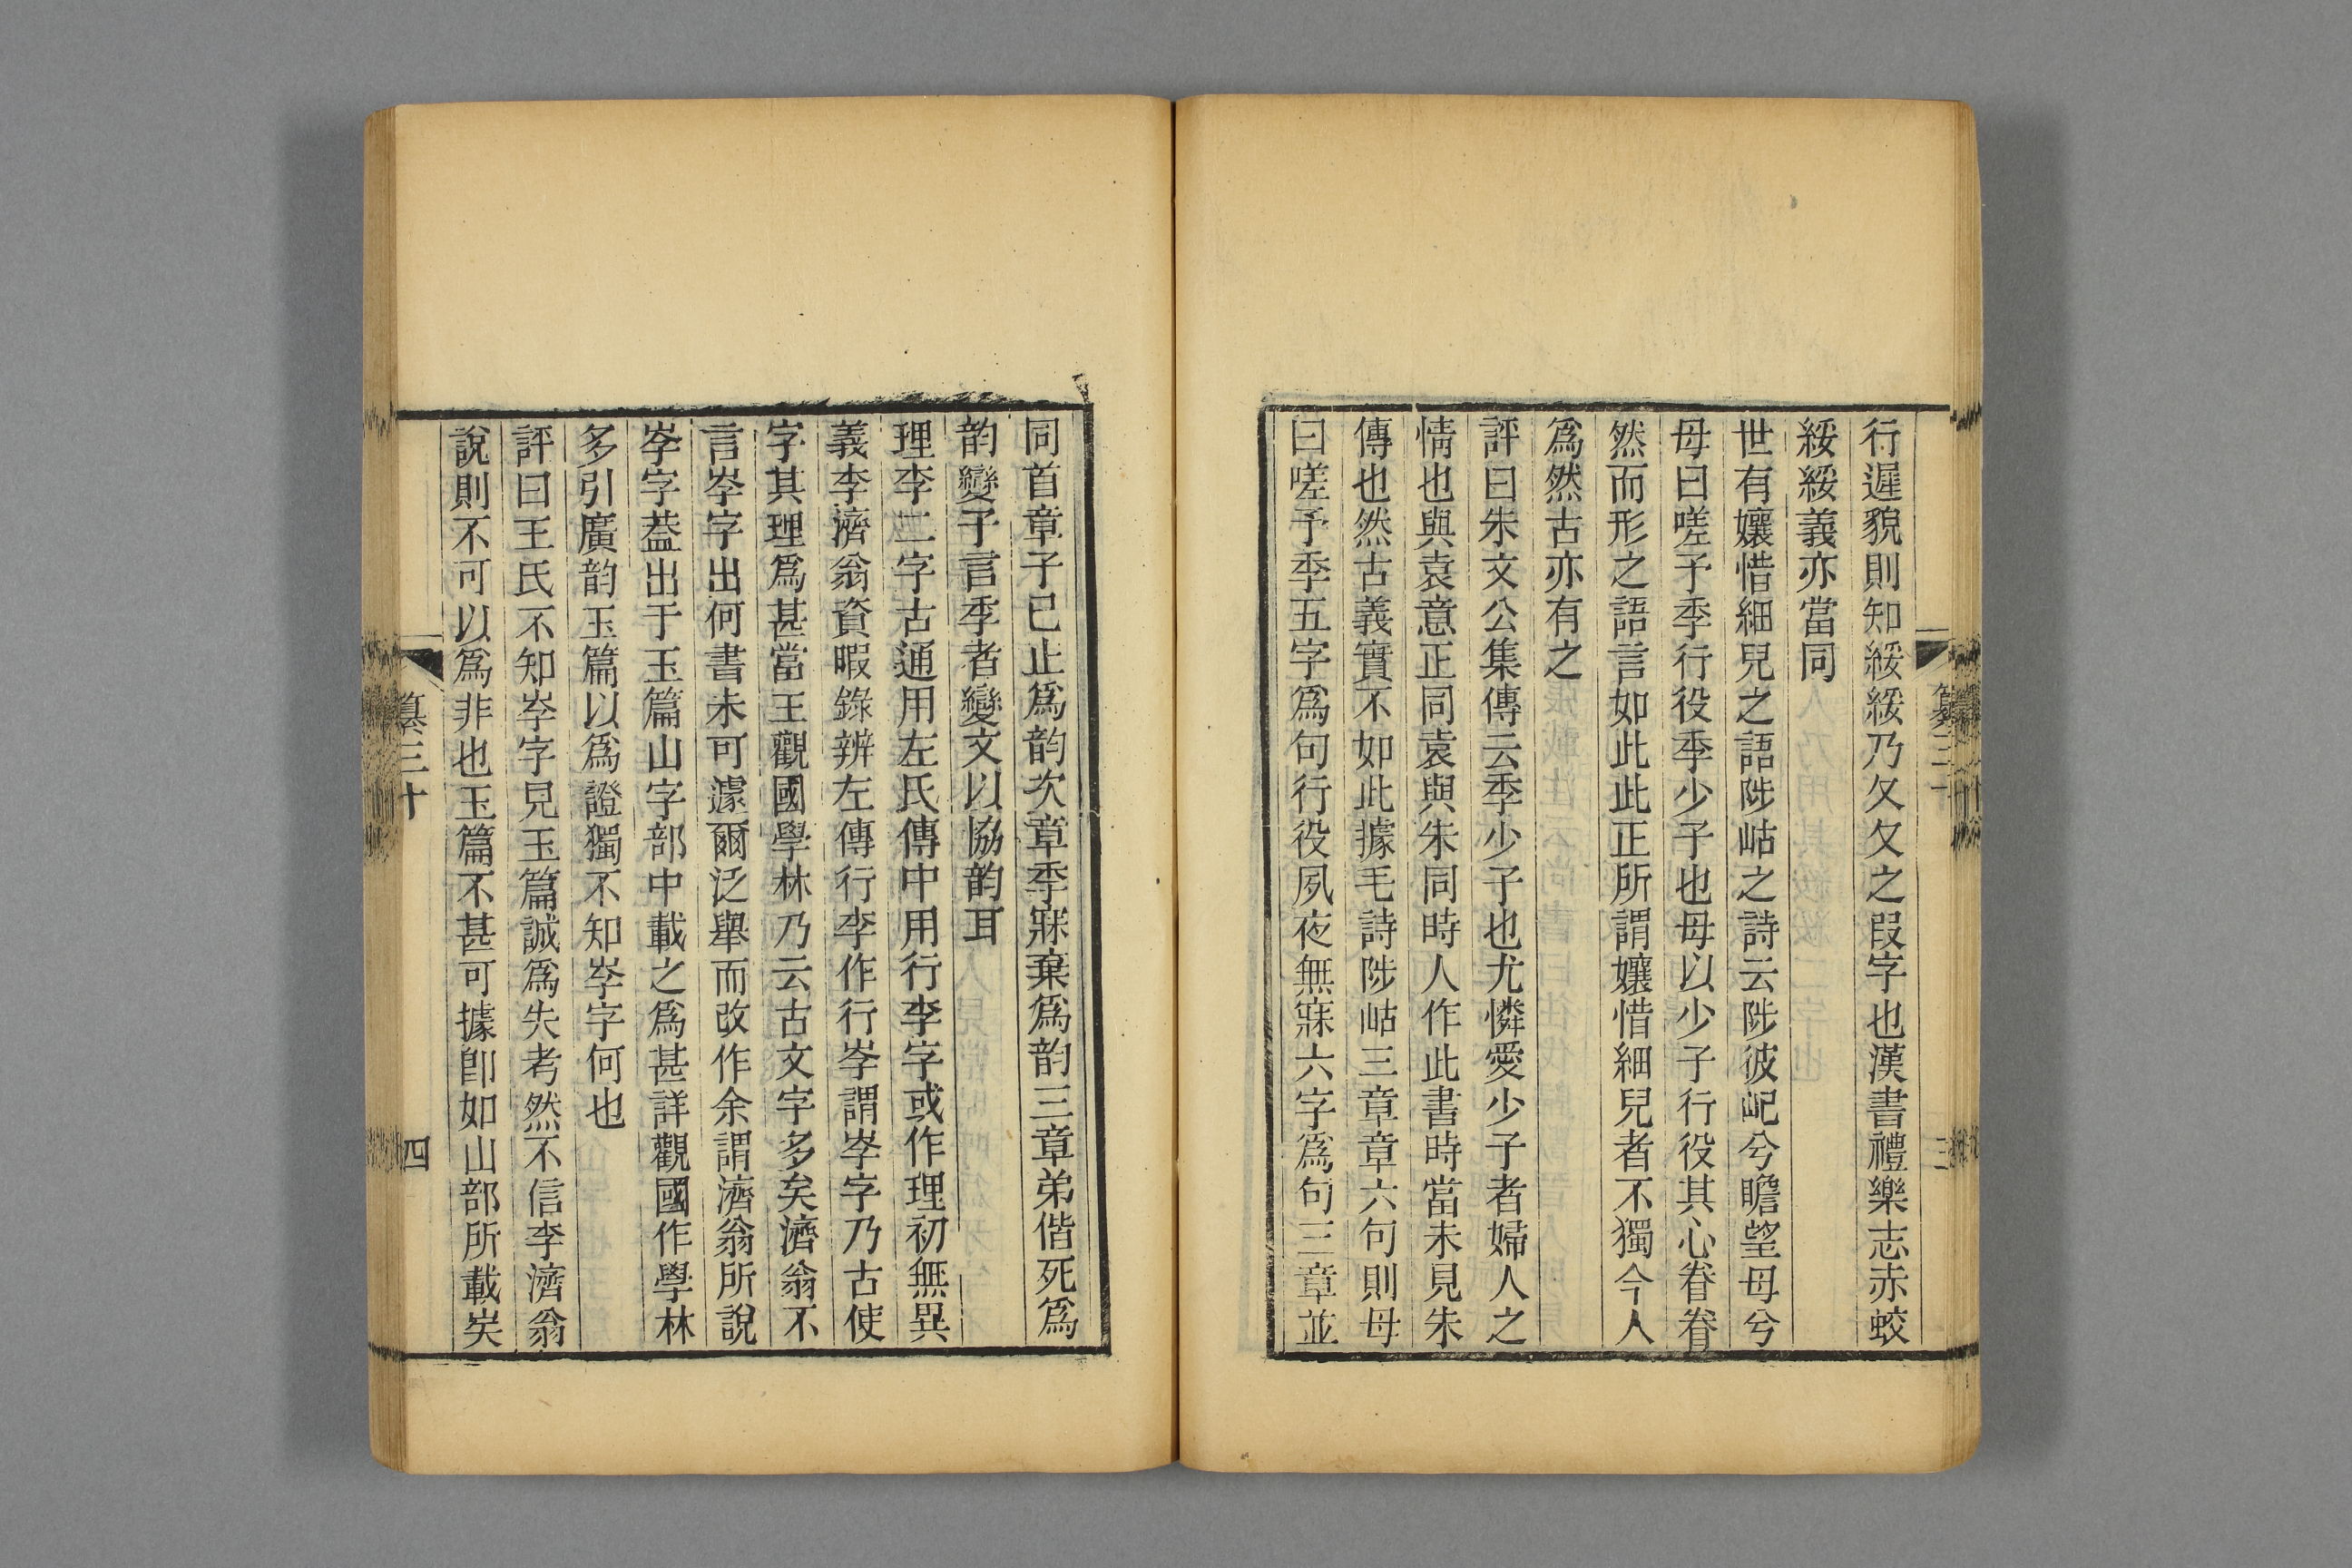 行遲貌則知綏綏乃夊夊之叚字也漢書禮樂志赤蛟
綏綏義亦當同
世有孃惜細兒之語陟岵之詩云陟彼屺兮瞻望母兮
母曰嗟予季行役季少子也母以少子行役其心眷眷
然而形之語言如此此正所謂孃惜細兒者不獨今人
爲然古亦有之
評曰朱文公集傳云季少子也尤憐愛少子者婦人之
情也與袁意正同袁與朱同時人作此書時當未見朱
傳也然古義實不如此據毛詩陟岵三章章六句則母
曰嗟予季五字爲句行役夙夜無寐六字爲句三章並
同首章子已止爲韵次章季寐棄爲韵三章弟偕死爲
韵變子言季者變文以協韵耳
理李二字古通用左氏傳中用行李字或作理初無異
義李濟翁資暇錄辨左傳行李作行岺謂岺字乃古使
字其理爲甚當王觀國學林乃云古文字多矣濟翁不
言岺字出何書未可遽爾泛舉而改作余謂濟翁所說
岺字葢出于玉篇山字部中載之爲甚詳觀國作學林
多引廣韵玉篇以爲證獨不知岺字何也
評曰王氏不知岺字見玉篇誠爲失考然不信李濟翁
說則不可以爲非也玉篇不甚可據卽如山部所載矣
纂三十
四